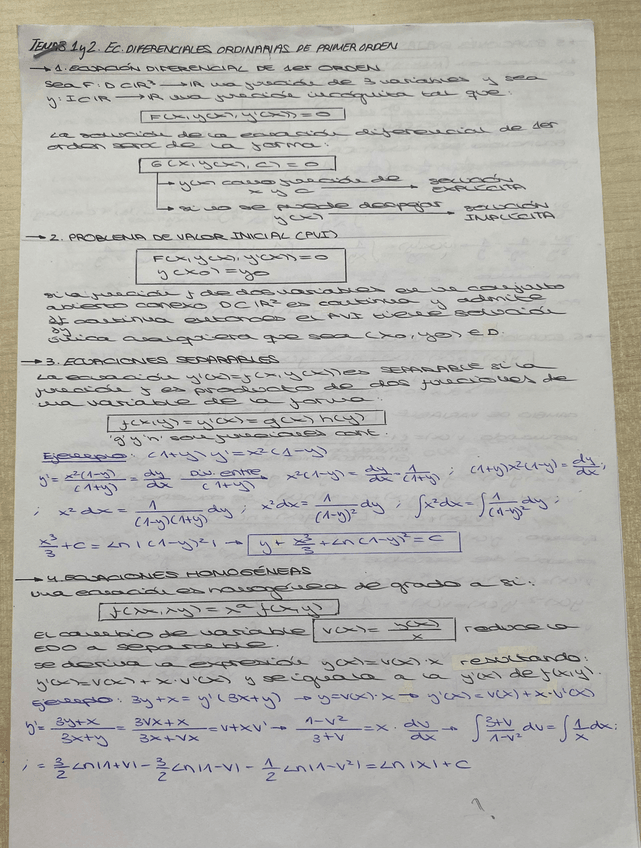 TEMAS 1 y 2. EC. DIFERENCIALES ORDINARIAS DE PRIMER ORDEN
→ 1. ECUACIÓN DIFERENCIAL DE 1ER ORDEN
Sea F: D⊂ℝ³ → ℝ una función de 3 variables y sea
y: I⊂ℝ → ℝ una función incógnita tal que:
F(x, y(x), y'(x)) = 0
La solución de la ecuación diferencial de 1er
orden será de la forma:
G(x, y(x), C) = 0
→ y(x) como función de x y C → SOLUCIÓN EXPLÍCITA
→ si no se puede despejar y(x) → SOLUCIÓN IMPLÍCITA
→ 2. PROBLEMA DE VALOR INICIAL (PVI)
F(x, y(x), y'(x)) = 0
y(x₀) = y₀
Si la función f de dos variables en un conjunto
abierto conexo D⊂ℝ² es continua y admite
∂f/∂y continua entonces el PVI tiene solución
única cualquiera que sea (x₀, y₀) ∈ D.
→ 3. ECUACIONES SEPARABLES
La ecuación y'(x) = f(x, y(x)) es SEPARABLE si la
función f es producto de dos funciones de
una variable de la forma:
f(x,y) = y'(x) = g(x) h(y)
'g' y 'h' son funciones cont.
Ejemplo: (1+y) y' = x²(1-y)
y' = x²(1-y)/(1+y) = dy/dx div. entre (1+y) x²(1-y) = dy/dx · 1/(1+y) ; (1+y)x²(1-y) = dy/dx ;
; x² dx = 1/((1-y)(1+y)) dy ; x² dx = 1/(1-y)² dy ; ∫x² dx = ∫ 1/(1-y)² dy ;
x³/3 + C = Ln |(1-y)²| → y + x³/3 + Ln (1-y)² = C
→ 4. ECUACIONES HOMOGÉNEAS
Una ecuación es homogénea de grado a si:
f(λx, λy) = λᵃ f(x,y)
El cambio de variable v(x) = y(x)/x reduce la
EDO a separable.
Se deriva la expresión y(x) = v(x)·x resultando:
y'(x) = v(x) + x·v'(x) y se iguala a la y'(x) de f(x,y).
Ejemplo: 3y+x = y'(3x+y) → y = v(x)·x → y'(x) = v(x) + x·v'(x)
y' = (3y+x)/(3x+y) = (3vx+x)/(3x+vx) = v+xv' → (1-v²)/(3+v) = x · dv/dx → ∫ (3+v)/(1-v²) dv = ∫ 1/x dx ;
; = 3/2 Ln|1+v| - 3/2 Ln|1-v| - 1/2 Ln|1-v²| = Ln|x| + C
1.